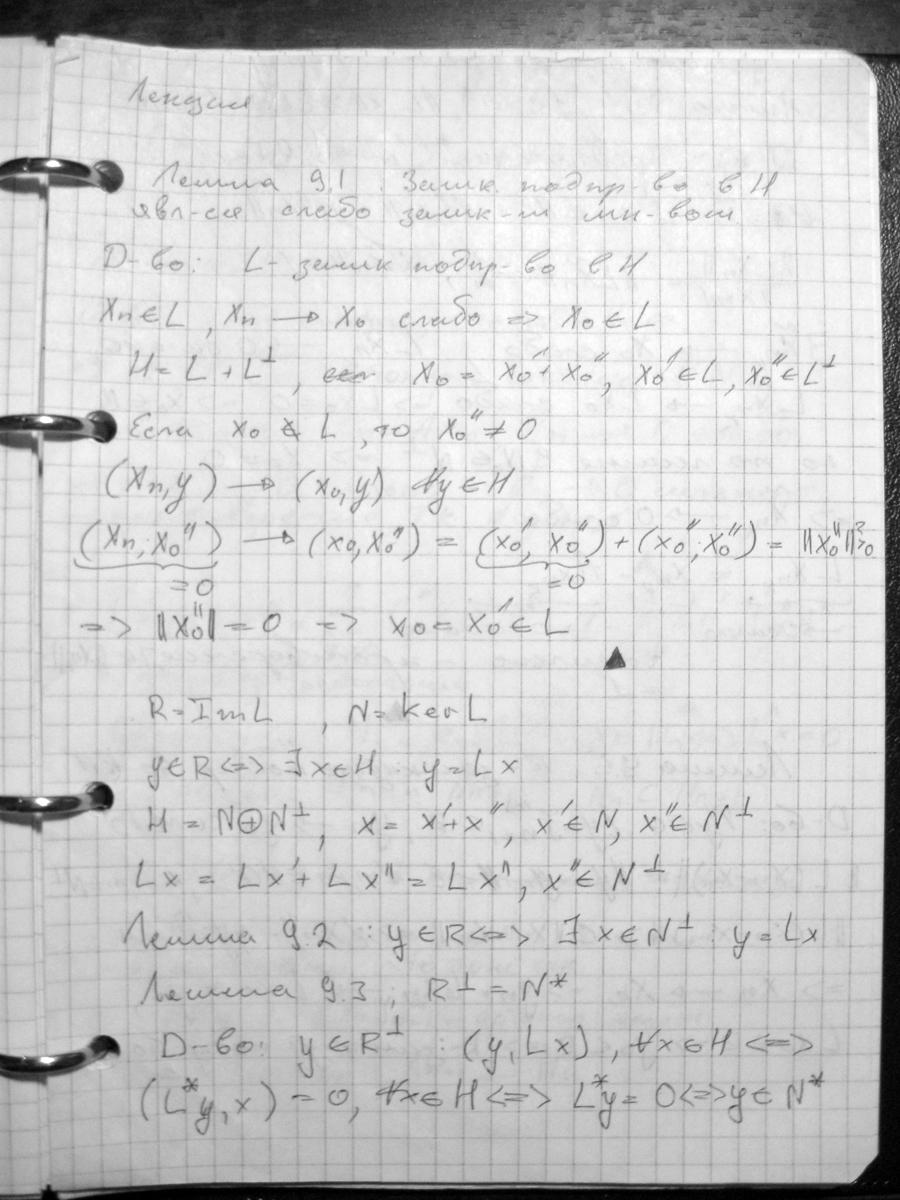 Лекция
Лемма 9.1. Замк. подпр-во в H
явл-ся слабо замк-м мн-вом
D-во: L - замк подпр-во в H
xₙ ∈ L, xₙ → x₀ слабо => x₀ ∈ L
H = L + L^⊥, x₀ = x₀' + x₀'', x₀' ∈ L, x₀'' ∈ L^⊥
Если x₀ ∉ L, то x₀'' ≠ 0
(xₙ, y) → (x₀, y) ∀y ∈ H
(xₙ, x₀'') → (x₀, x₀'') = (x₀', x₀'') + (x₀'', x₀'') = ||x₀''||² > 0
= 0 = 0
=> ||x₀''|| = 0 => x₀ = x₀' ∈ L
▲
R = Im L, N = ker L
y ∈ R <=> ∃ x ∈ H : y = Lx
H = N ⊕ N^⊥, x = x' + x'', x' ∈ N, x'' ∈ N^⊥
Lx = Lx' + Lx'' = Lx'', x'' ∈ N^⊥
Лемма 9.2 : y ∈ R <=> ∃ x ∈ N^⊥ : y = Lx
Лемма 9.3 : R^⊥ = N*
D-во: y ∈ R^⊥ : (y, Lx), ∀x ∈ H <=>
(L*y, x) = 0, ∀x ∈ H <=> L*y = 0 <=> y ∈ N*